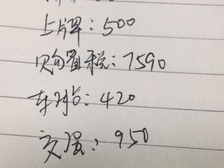 上牌:500
购置税:7590
车船:420
交强:950